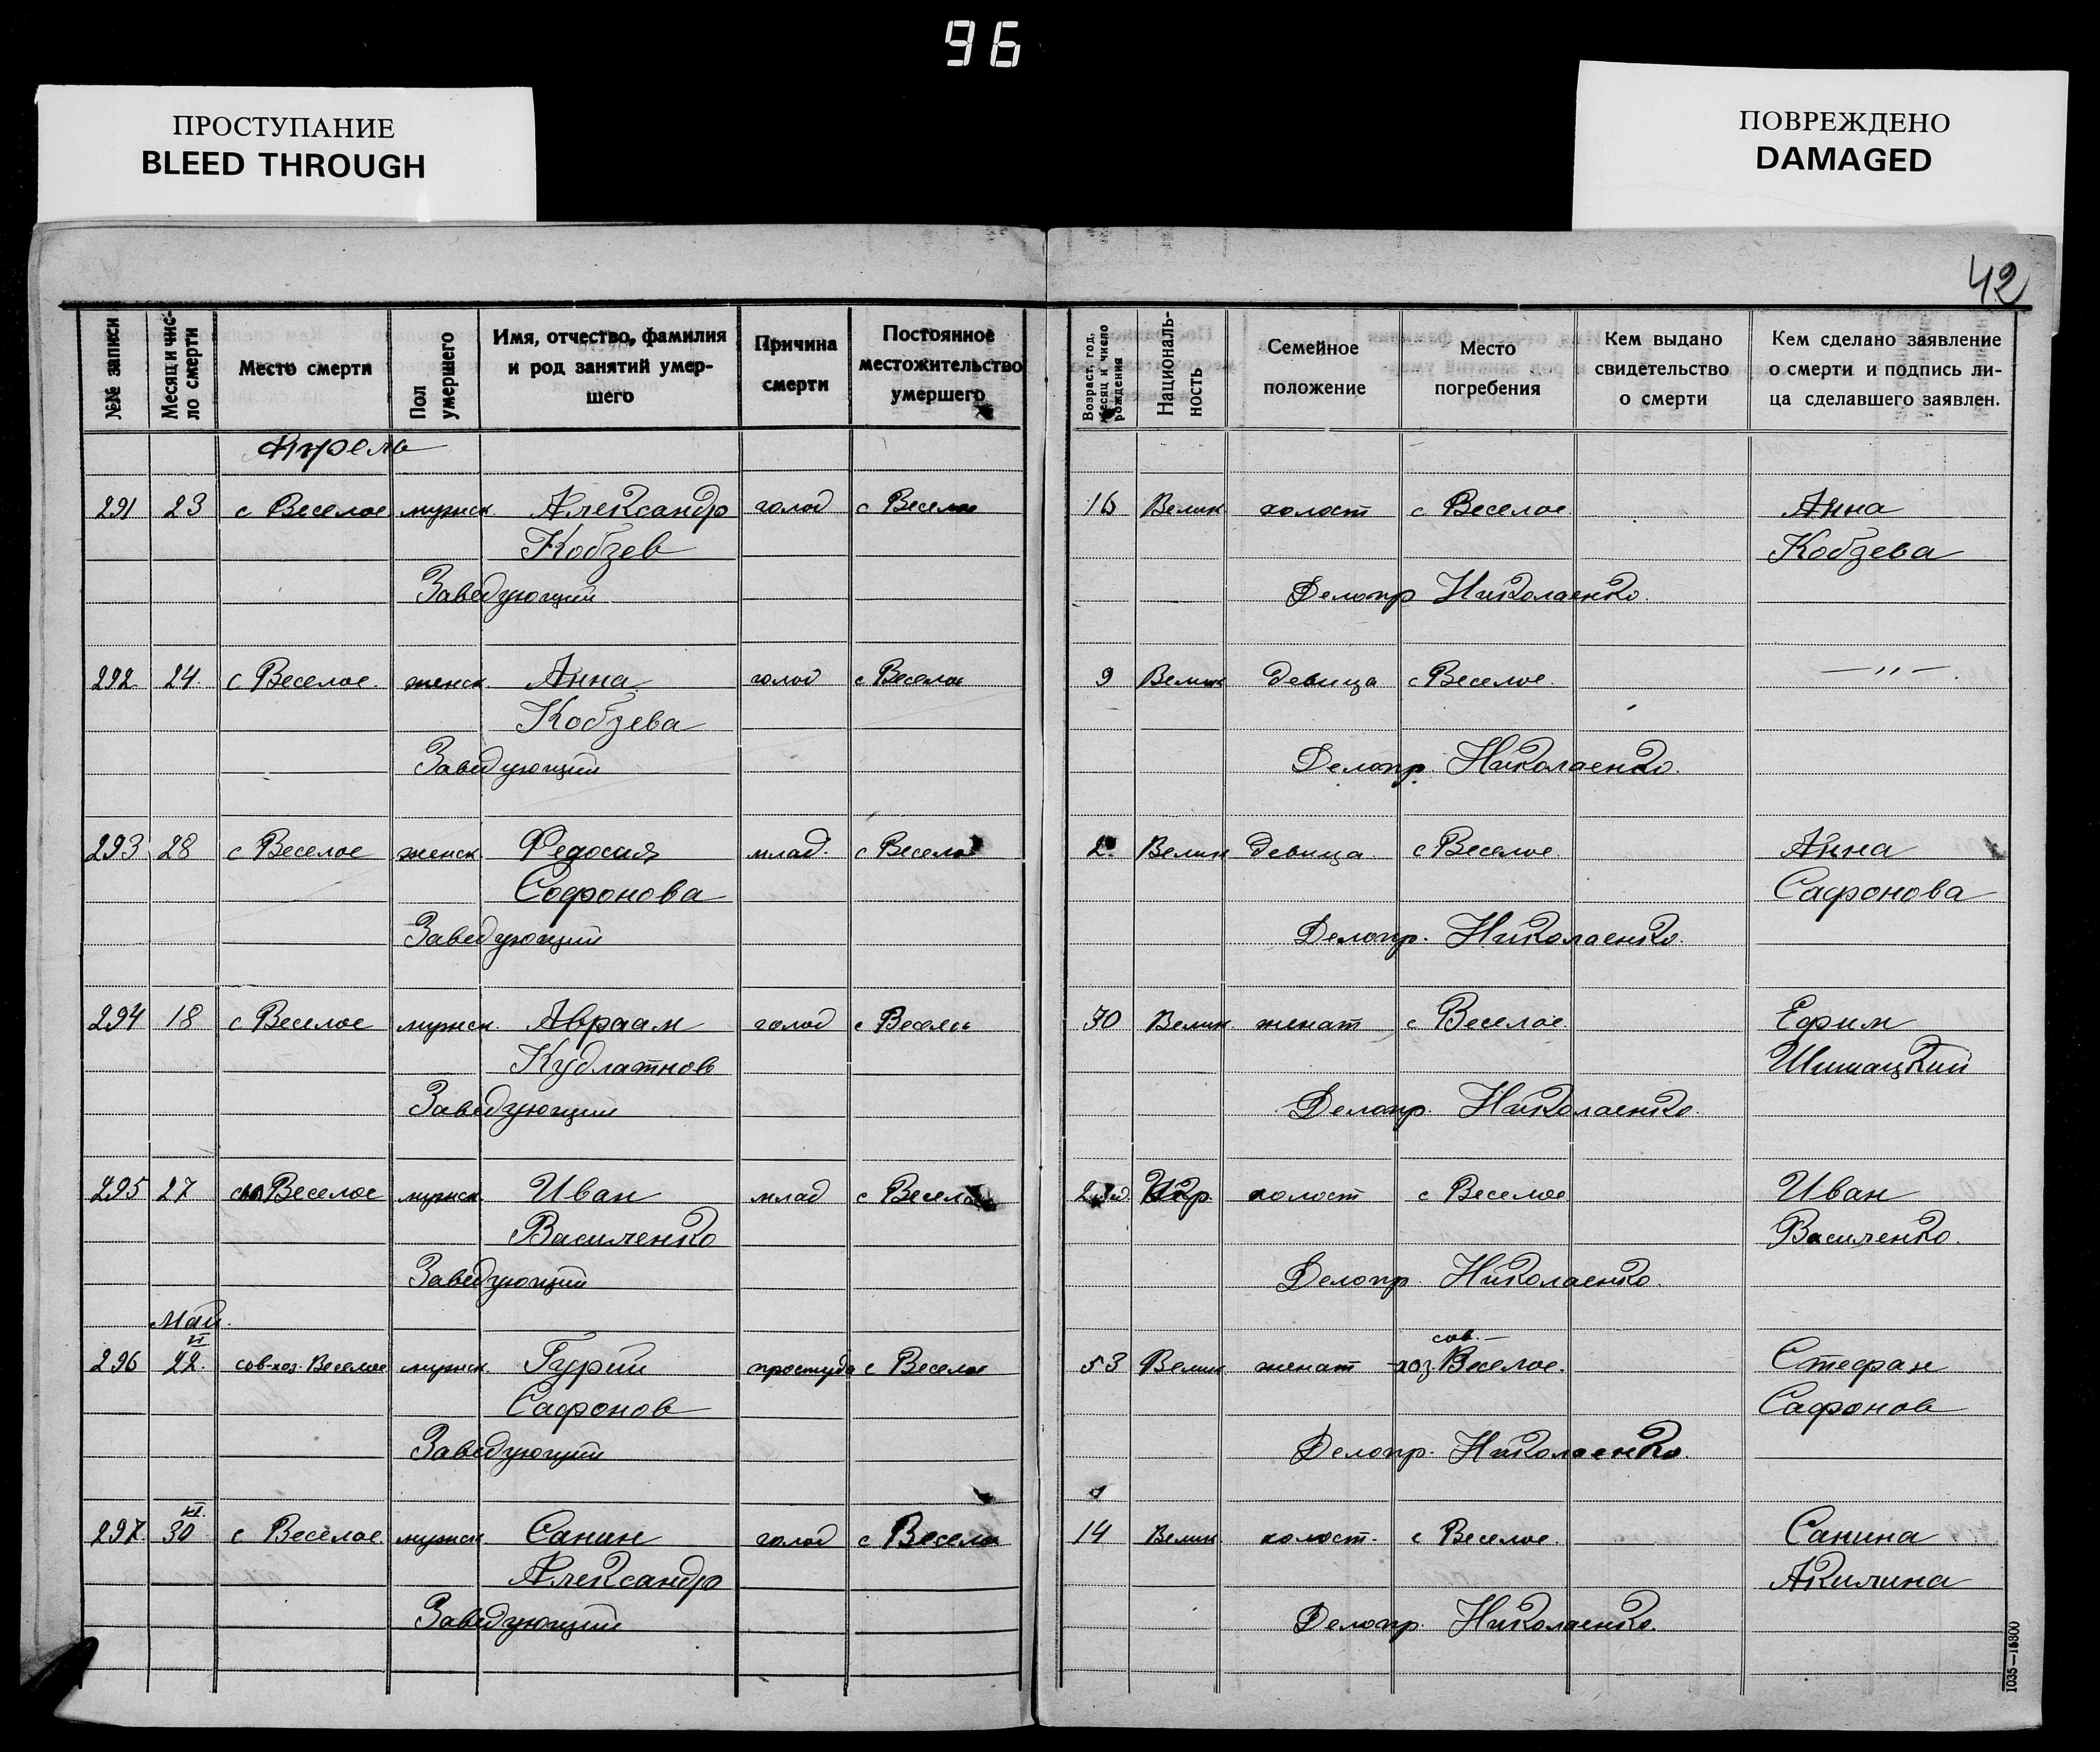 96
ПРОСТУПАНИЕ
BLEED THROUGH
ПОВРЕЖДЕНО
DAMAGED
42
№№ записи
Месяц и чис-
ло смерти
Место смерти
Пол
умершего
Имя, отчество, фамилия
и род занятий умер-
шего
Причина
смерти
Постоянное
местожительство
умершего
Возраст, год,
месяц и число
рождения
Националь-
ность
Семейное
положение
Место
погребения
Кем выдано
свидетельство
о смерти
Кем сделано заявление
о смерти и подпись ли-
ца сделавшего заявлен.
Апрель
291 23 с Веселое мужск Александр голод с Веселое 16 Велик холост с Веселое Анна
Кобзев Кобзева
Заведующий Делопр Николаенко.
292 24. с Веселое. женск Анна голод с Веселое 9 Велик девица с Веселое. —〃—
Кобзева
Заведующий Делопр. Николаенко.
293 28 с Веселое женск. Федосия млад. с Весело 2 Велик девица с Веселое. Анна
Софонова Сафонова
Заведующий Делопр. Николаенко.
294 18 с Веселое мужск. Авраам голод с Веселое 70 Велик. женат с Веселое. Ефим
Кудлатнов Шимацкий
Заведующий Делопр. Николаенко.
295 27 Веселое мужск. Иван млад с Весело 2 Укр. холост с Веселое Иван
Василенко Василенко.
Заведующий Делопр. Николаенко.
Май.
VI сов.-
296 22. сов-хоз. Веселое мужск. Гурий простуда с Веселое 53 Велик женат -хоз. Веселое. Стефан
Сафонов Сафонов
Заведующий Делопр. Николаенко.
VI.
297. 30 с Веселое. мужск Санин голод с Весело 14 Велик. холост. с Веселое. Санина
Александр Акилина
Заведующий Делопр. Николаенко.
1035—15800